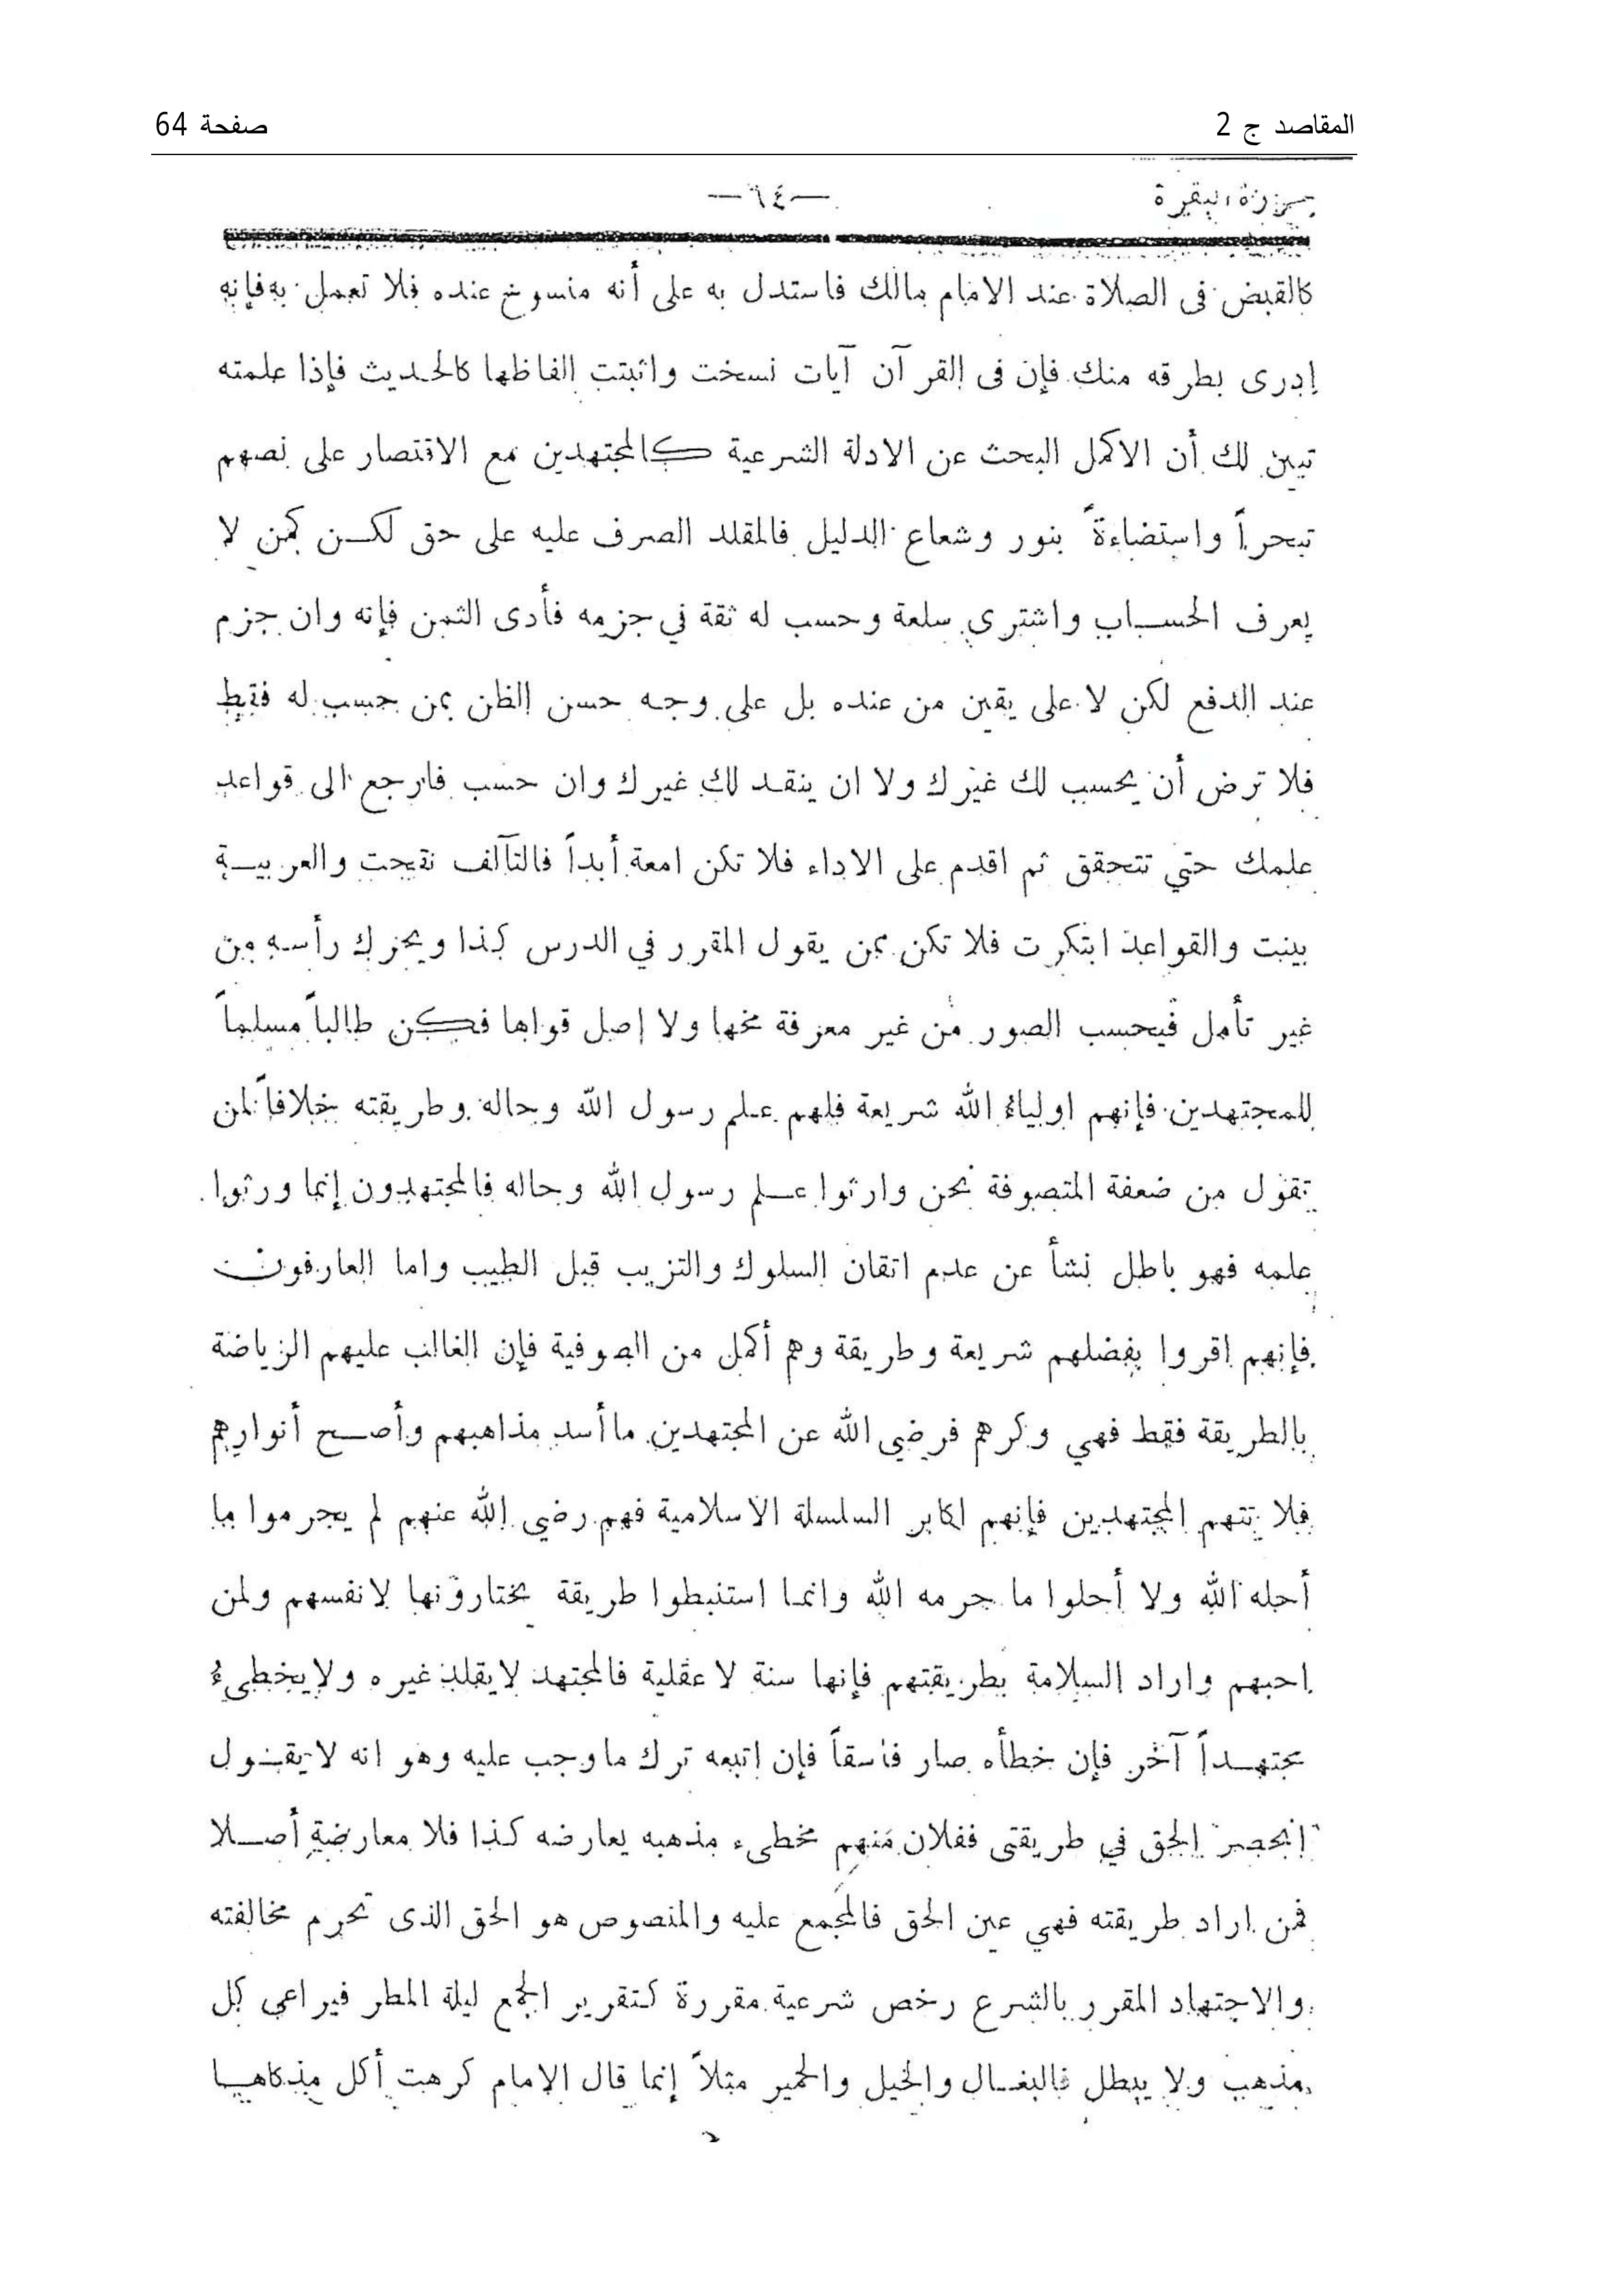 المقاصد ج 2
صفحة 64
سورة البقرة
—٦٤—
كالقبض فى الصلاة عند الامام مالك فاستدل به على أنه منسوخ عنده فلا تعمل به فإنه
ادرى بطرقه منك فإن فى القرآن آيات نسخت واثبتت الفاظها كالحديث فإذا علمته
تبين لك أن الاكمل البحث عن الادلة الشرعية كالمجتهدين مع الاقتصار على نصهم
تبحراً واستضاءةً بنور وشعاع الدليل فالمقلد الصرف عليه على حق لكن كمن لا
يعرف الحساب واشترى سلعة وحسب له ثقة في جزمه فأدى الثمن فإنه وان جزم
عند الدفع لكن لا على يقين من عنده بل على وجه حسن الظن بمن حسب له فقط
فلا ترض أن يحسب لك غيرك ولا ان ينقد لك غيرك وان حسب فارجع الى قواعد
علمك حتى تتحقق ثم اقدم على الاداء فلا تكن امعة أبداً فالتآلف نقيحت والعربية
بينت والقواعد ابتكرت فلا تكن ممن يقول المقرر في الدرس كذا ويحرك رأسه من
غير تأمل فيحسب الصور من غير معرفة مخها ولا اصل قواها فكن طالباً مسلماً
للمجتهدين فإنهم اولياءُ الله شريعة فلهم علم رسول الله وحاله وطريقته خلافاً لمن
تقول من ضعفة المتصوفة نحن وارثوا علم رسول الله وحاله فالمجتهدون إنما ورثوا
علمه فهو باطل نشأ عن عدم اتقان السلوك والتزبب قبل الطيب واما العارفون
فإنهم اقروا بفضلهم شريعة وطريقة وهم أكمل من الصوفية فإن الغالب عليهم الرياضة
بالطريقة فقط فهي وكرهم فرضي الله عن المجتهدين ما أسد مذاهبهم وأصح أنوارهم
فلا تتهم المجتهدين فإنهم اكابر السلسلة الاسلامية فهم رضي الله عنهم لم يحرموا ما
أحله الله ولا أحلوا ما حرمه الله وانما استنبطوا طريقة يختارونها لانفسهم ولمن
احبهم واراد السلامة بطريقتهم فإنها سنة لا عقلية فالمجتهد لا يقلد غيره ولا يخطىءُ
مجتهداً آخر فإن خطأه صار فاسقاً فإن اتبعه ترك ما وجب عليه وهو انه لا يقول
انحصر الحق في طريقتى ففلان منهم مخطىء مذهبه يعارضه كذا فلا معارضة أصلا
فمن اراد طريقته فهي عين الحق فالمجمع عليه والمنصوص هو الحق الذى تحرم مخالفته
والاجتهاد المقرر بالشرع رخص شرعية مقررة كتقرير الجمع ليلة المطر فيراعى كل
مذهب ولا يبطل فالبغال والخيل والحمير مثلاً إنما قال الامام كرهت أكل مذكاها